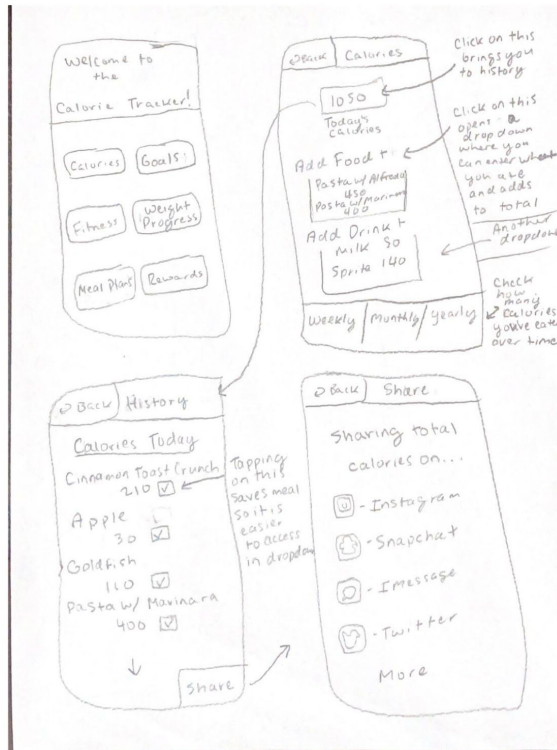 Welcome to
the
Calorie Tracker!
Calories
Goals
Fitness
Weight
Progress
Meal Plans
Rewards
Back
Calories
1050
Today's
Calories
Add Food +
Pasta w/ Alfredo
450
Pasta w/ Marinara
400
Add Drink +
Milk 50
Sprite 140
Weekly / Monthly / Yearly
Click on this
brings you
to history
Click on this
opens a
dropdown
where you
can enter what
you ate
and adds
to total
Another
dropdown
Check
how
many
calories
you've eaten
over time
Back
History
Calories Today
Cinnamon Toast Crunch
210
Apple
30
Goldfish
Pasta w/ Marinara
400
Share
Tapping
on this
saves meal
so it is
easier
to access
in dropdown
Back
Share
Sharing total
calories on...
- Instagram
- Snapchat
- Imessage
- Twitter
More